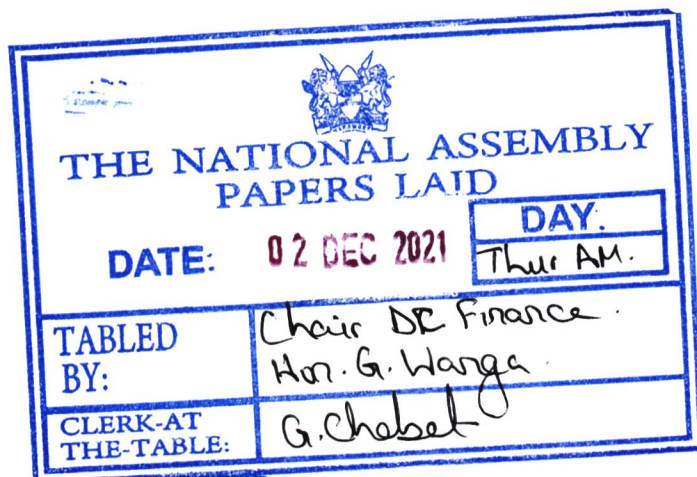 THE NATIONAL ASSEMBLY
PAPERS LAID
DATE: 02 DEC 2021
DAY.
Thur AM.
TABLED BY:
Chair DC Finance.
Hon. G. Wanga.
CLERK-AT THE-TABLE:
G. Chebet